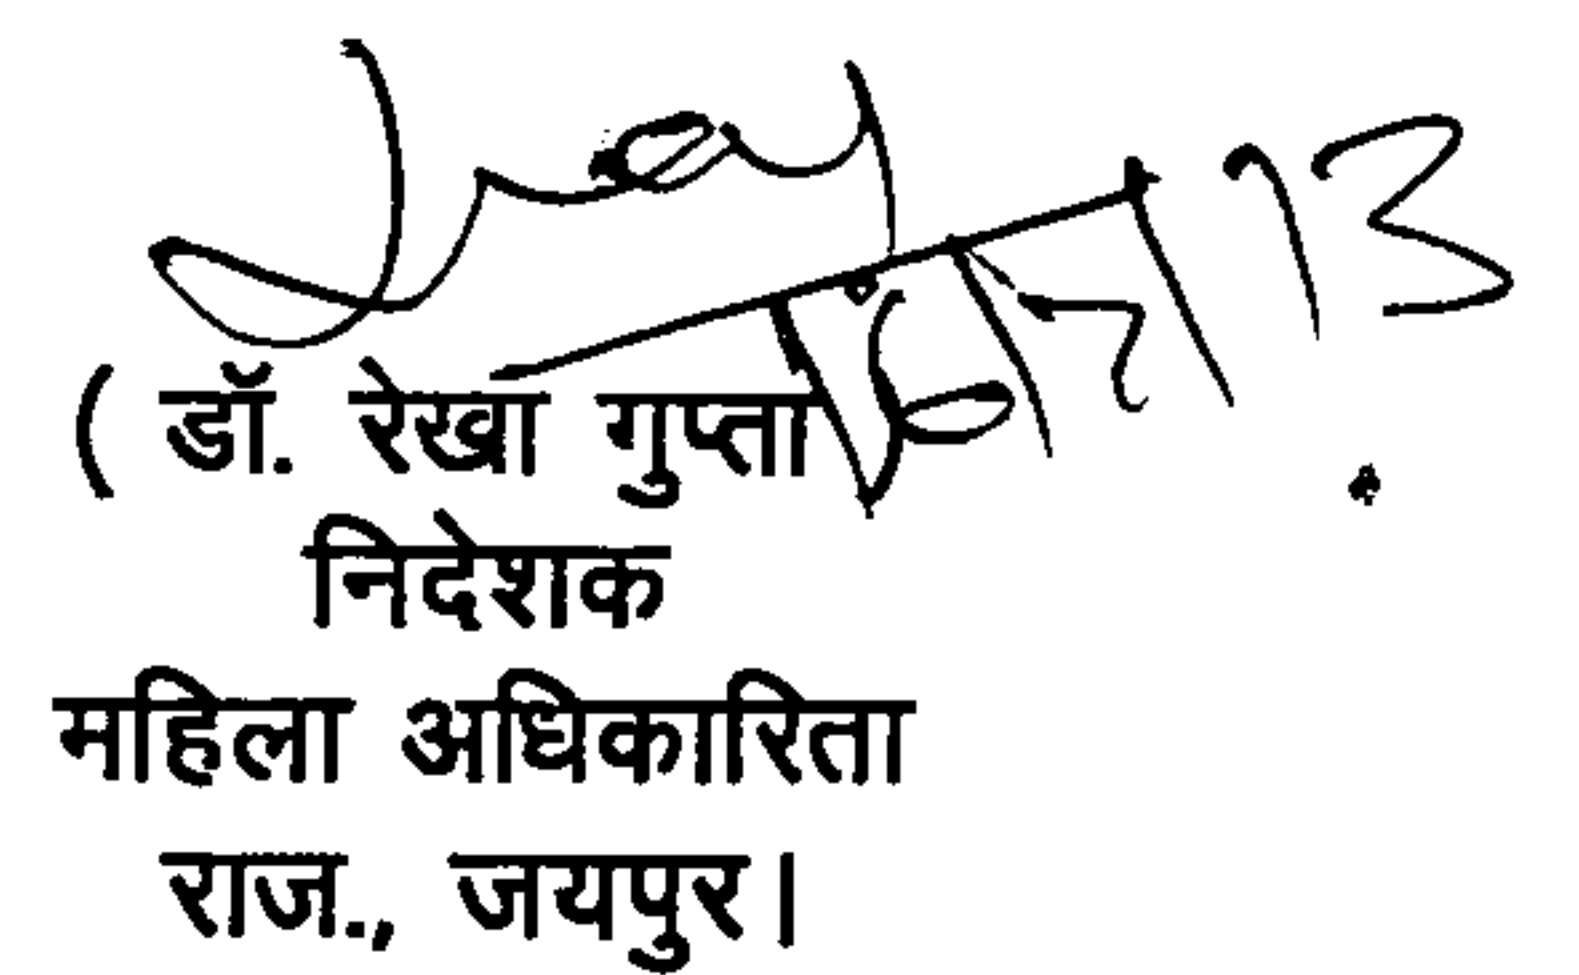 ( डॉ. रेखा गुप्ता
निदेशक
महिला अधिकारिता
राज., जयपुर।